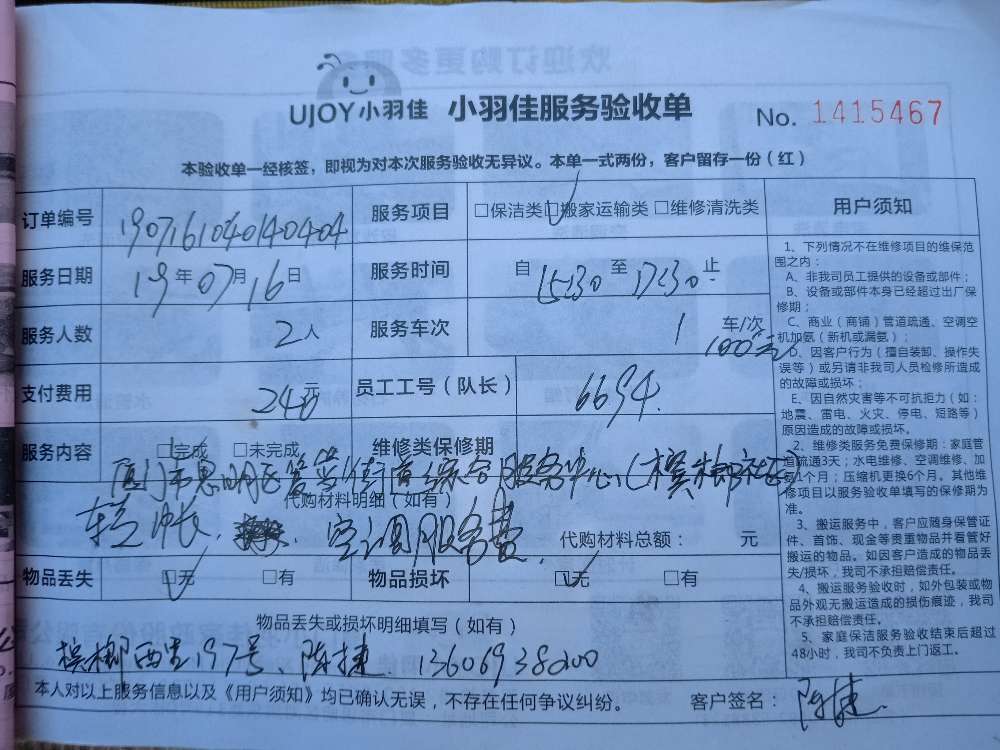 UJOY小羽佳 小羽佳服务验收单 No. 1415467
本验收单一经核签，即视为对本次服务验收无异议。本单一式两份，客户留存一份（红）
订单编号 190716104014-0404 服务项目 □保洁类 □搬家运输类 □维修清洗类
服务日期 19年07月16日 服务时间 自 15:30 至 17:30 止
服务人数 2人 服务车次 1 车/次
100元
支付费用 240元 员工工号（队长） 6694
服务内容 □完成 □未完成 维修类保修期
厦门市思明区筼筜街道综合服务中心（槟榔社区）
代购材料明细（如有）
空调服务费 代购材料总额： 元
物品丢失 □无 □有 物品损坏 □无 □有
物品丢失或损坏明细填写（如有）
槟榔西里197号 陈捷 13606938200
本人对以上服务信息以及《用户须知》均已确认无误，不存在任何争议纠纷。 客户签名： 陈捷
用户须知
1、下列情况不在维修项目的维保范
围之内：
A、非我司员工提供的设备或部件；
B、设备或部件本身已经超过出厂保
修期；
C、商业（商铺）管道疏通、空调空
机加氨（新机或漏氨）；
D、因客户行为（擅自装卸、操作失
误等）或另请非我司人员检修所造成
的故障或损坏；
E、因自然灾害等不可抗拒力（如：
地震、雷电、火灾、停电、短路等）
原因造成的故障或损坏。
2、维修类服务免费保修期：家庭管
道疏通3天；水电维修、空调维修、加
1个月；压缩机更换6个月。其他维
修项目以服务验收单填写的保修期为
准。
3、搬运服务中，客户应随身保管证
件、首饰、现金等贵重物品并看管好
搬运的物品。如因客户造成的物品丢
失/损坏，我司不承担赔偿责任。
4、搬运服务验收时，如外包装或物
品外观无搬运造成的损伤痕迹，我司
不承担赔偿责任。
5、家庭保洁服务验收结束后超过
48小时，我司不负责上门返工。